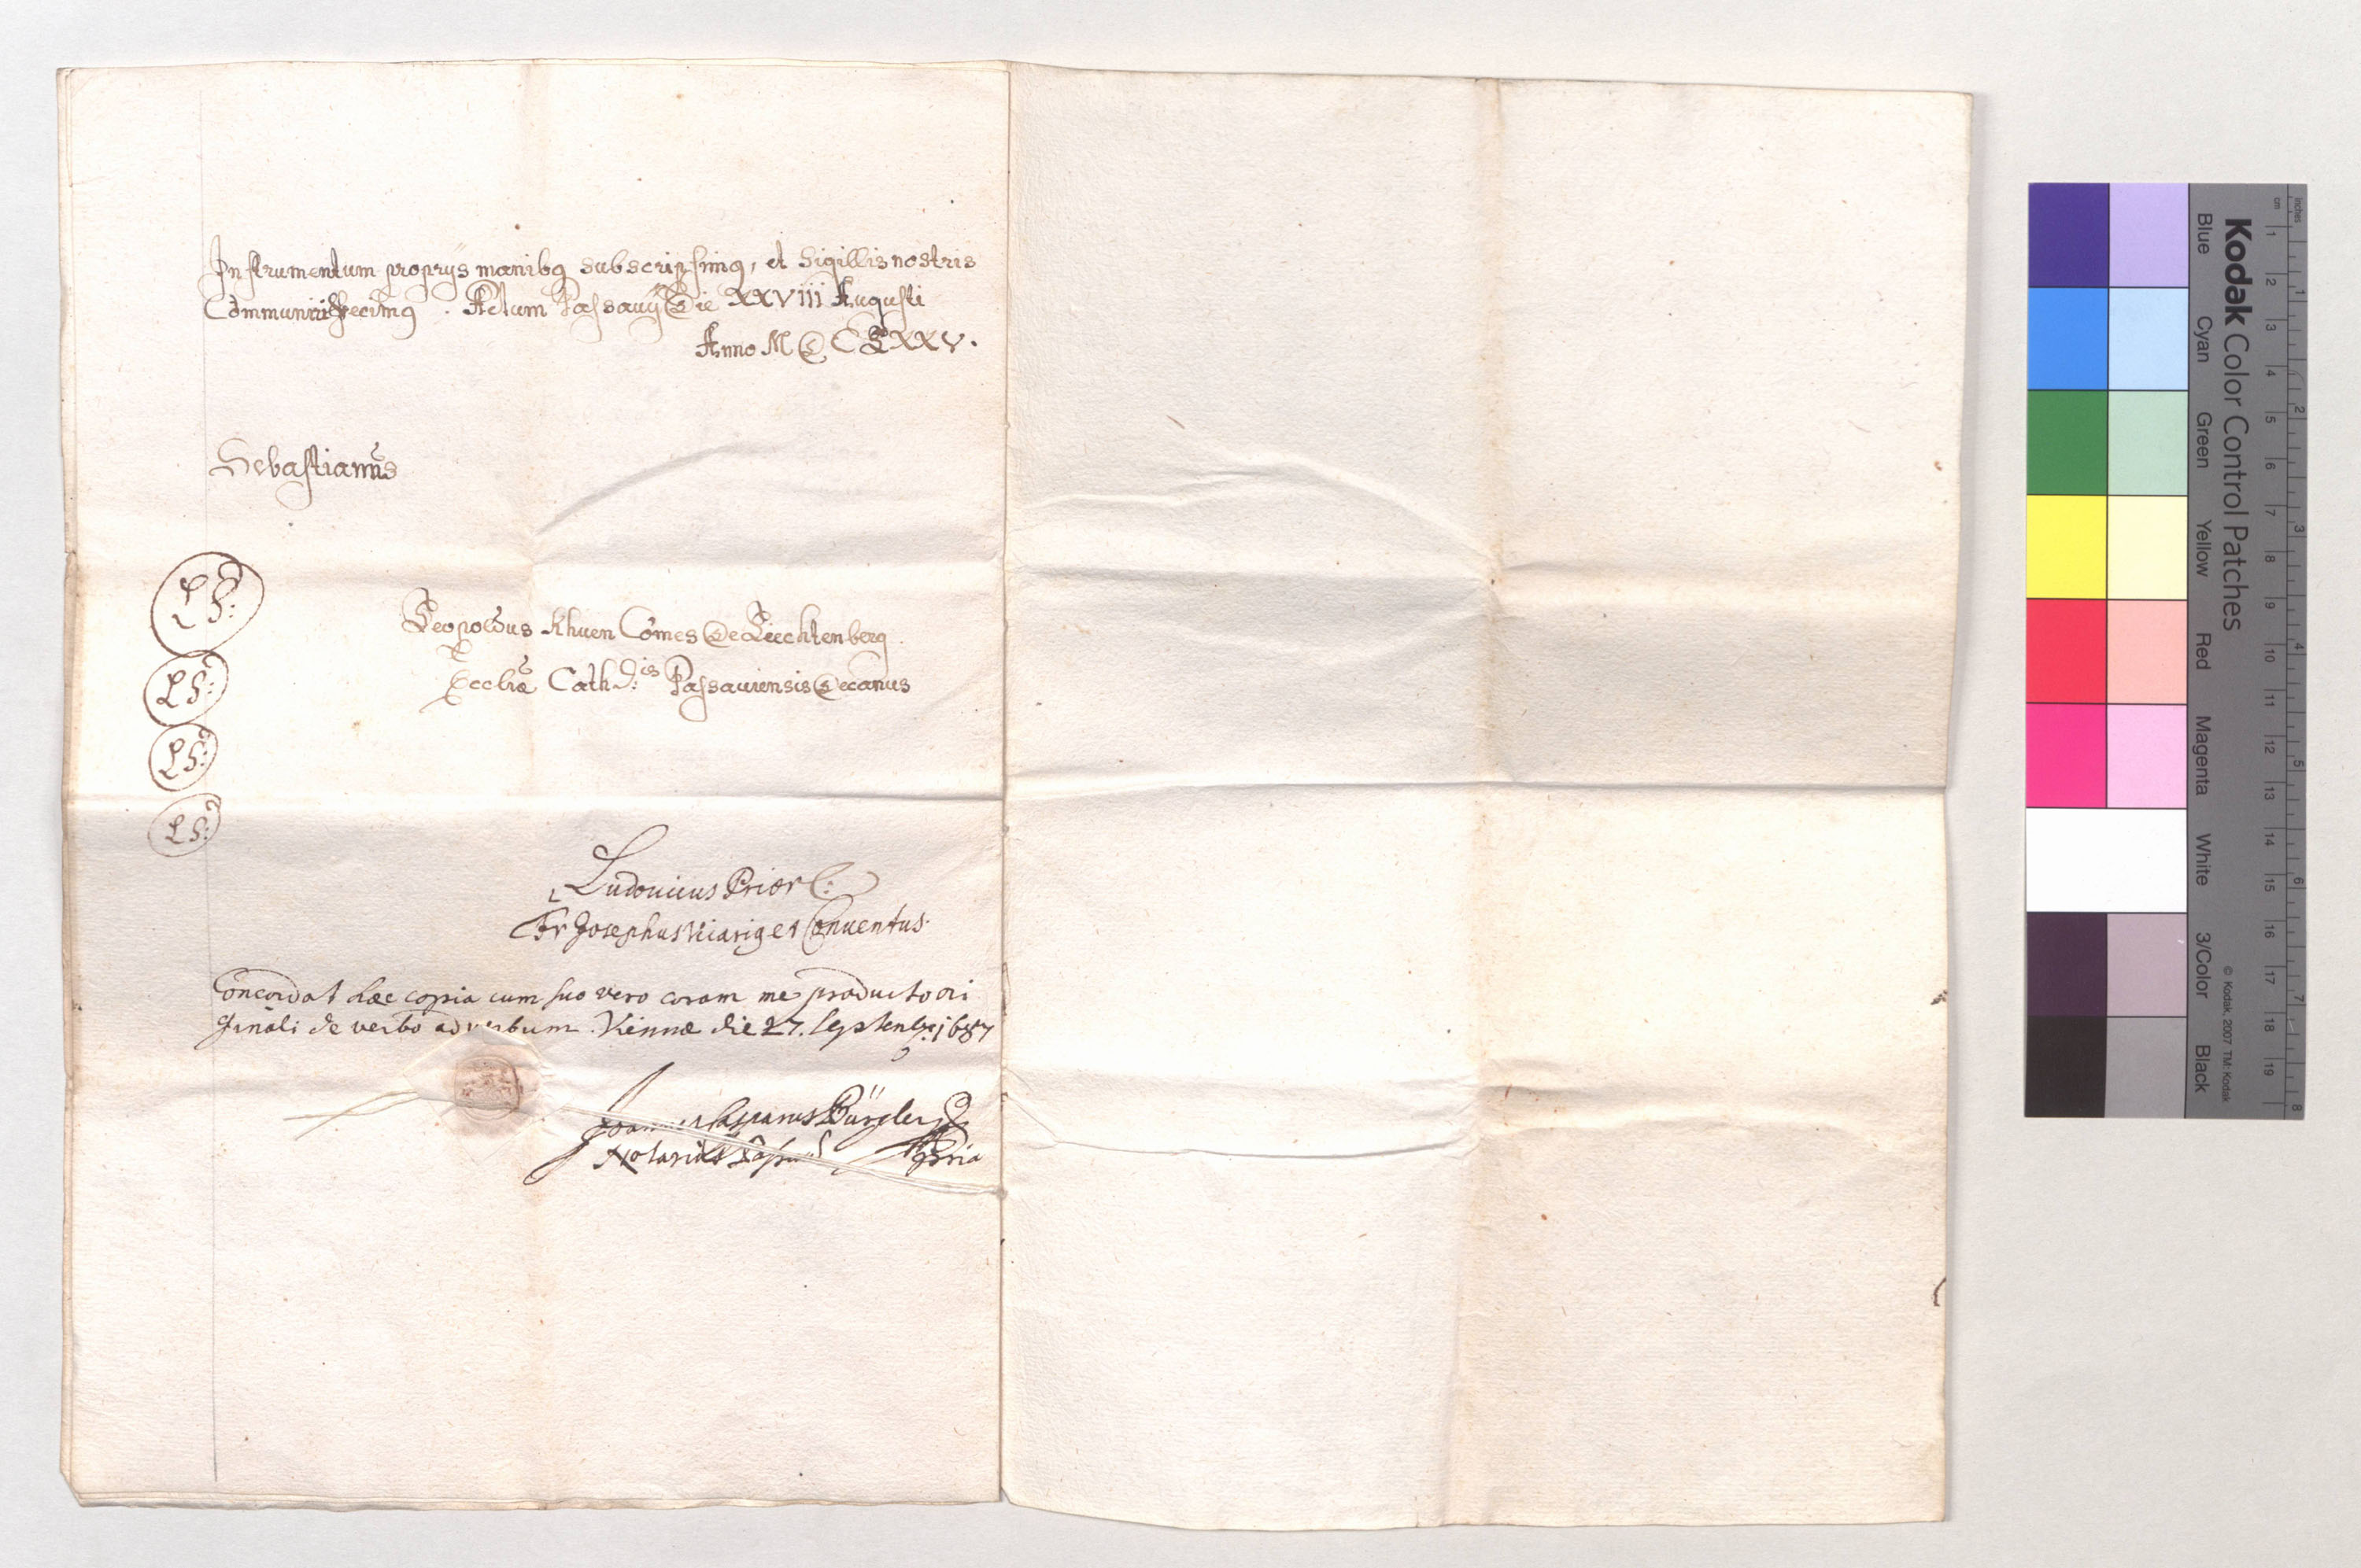 Instrumentum proprijs manibq subscripsimq, et Sigillis nostris
Cōmuniri fecimq. Actum Passavij Die XXVIII Augusti
Anno MDCLXXV.
Sebastianus
LS:
Leopoldus Khuen Comes De Liechtenberg
LS:
Eccliæ Cathd:is Passauiensis Decanus
LS:
LS:
Ludouicus Prior
Fr Josephus Vicariq et Conuentus.
Concordat hæc copia cum suo vero coram me producto ori
ginali de verbo ad verbum. Viennæ die 27. Septenbr: 1687
Joannes Casparus Bürgler
Notarius
Kodak Color Control Patches
Blue Cyan Green Yellow Red Magenta White 3/Color Black
© Kodak, 2007 TM: Kodak
cm 1 2 3 4 5 6 7 8 9 10 11 12 13 14 15 16 17 18 19
inches 1 2 3 4 5 6 7 8